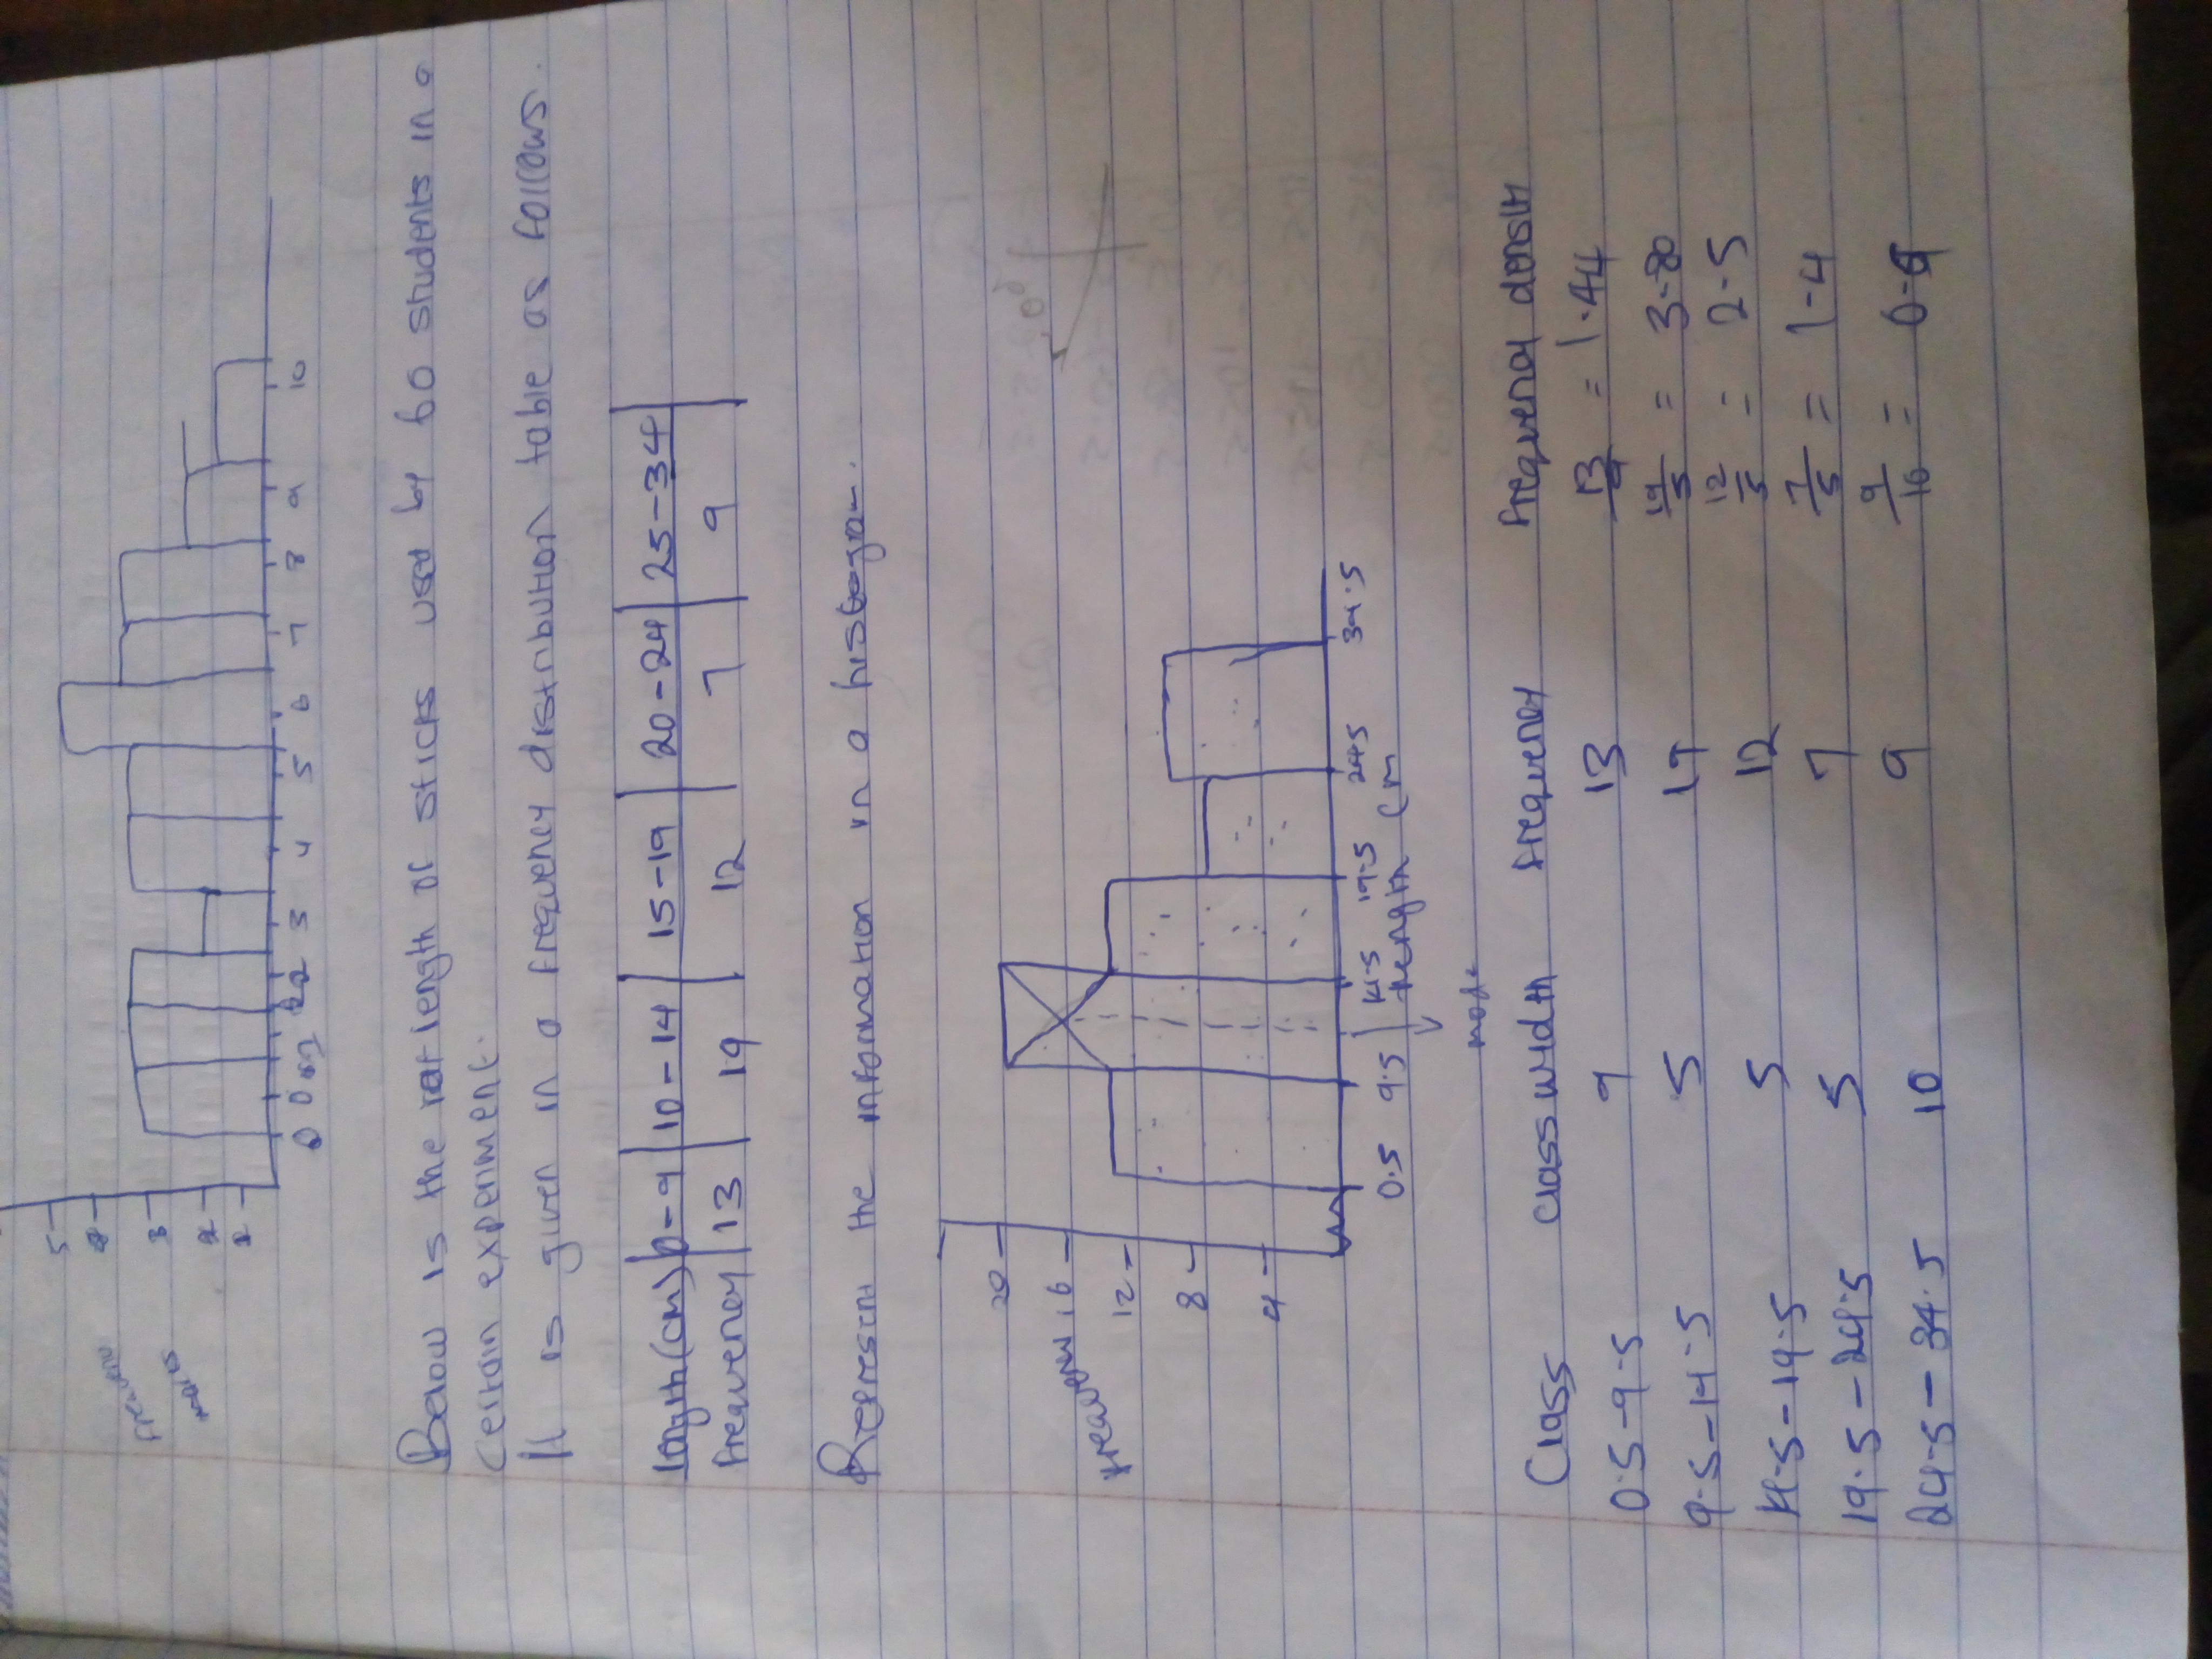 5
3
0 0 2 3 4 5 6 7 8 9 10
Below is the length of sticks used by 60 students in a
certain experiment.
It is given in a frequency distribution table as follows.
length (cm) 0-9 10-14 15-19 20-24 25-34
frequency 13 19 12 7 9
Represent the information in a histogram.
20
16
12
8
4
0.5 9.5 14.5 19.5 24.5 34.5
length cm
mode
Class class width frequency frequency density
0.5-9.5 9 13 13/9 = 1.44
9.5-14.5 5 19 19/5 = 3.80
14.5-19.5 5 12 12/5 = 2.5
19.5-24.5 5 7 7/5 = 1.4
24.5-34.5 10 9 9/10 = 0.9